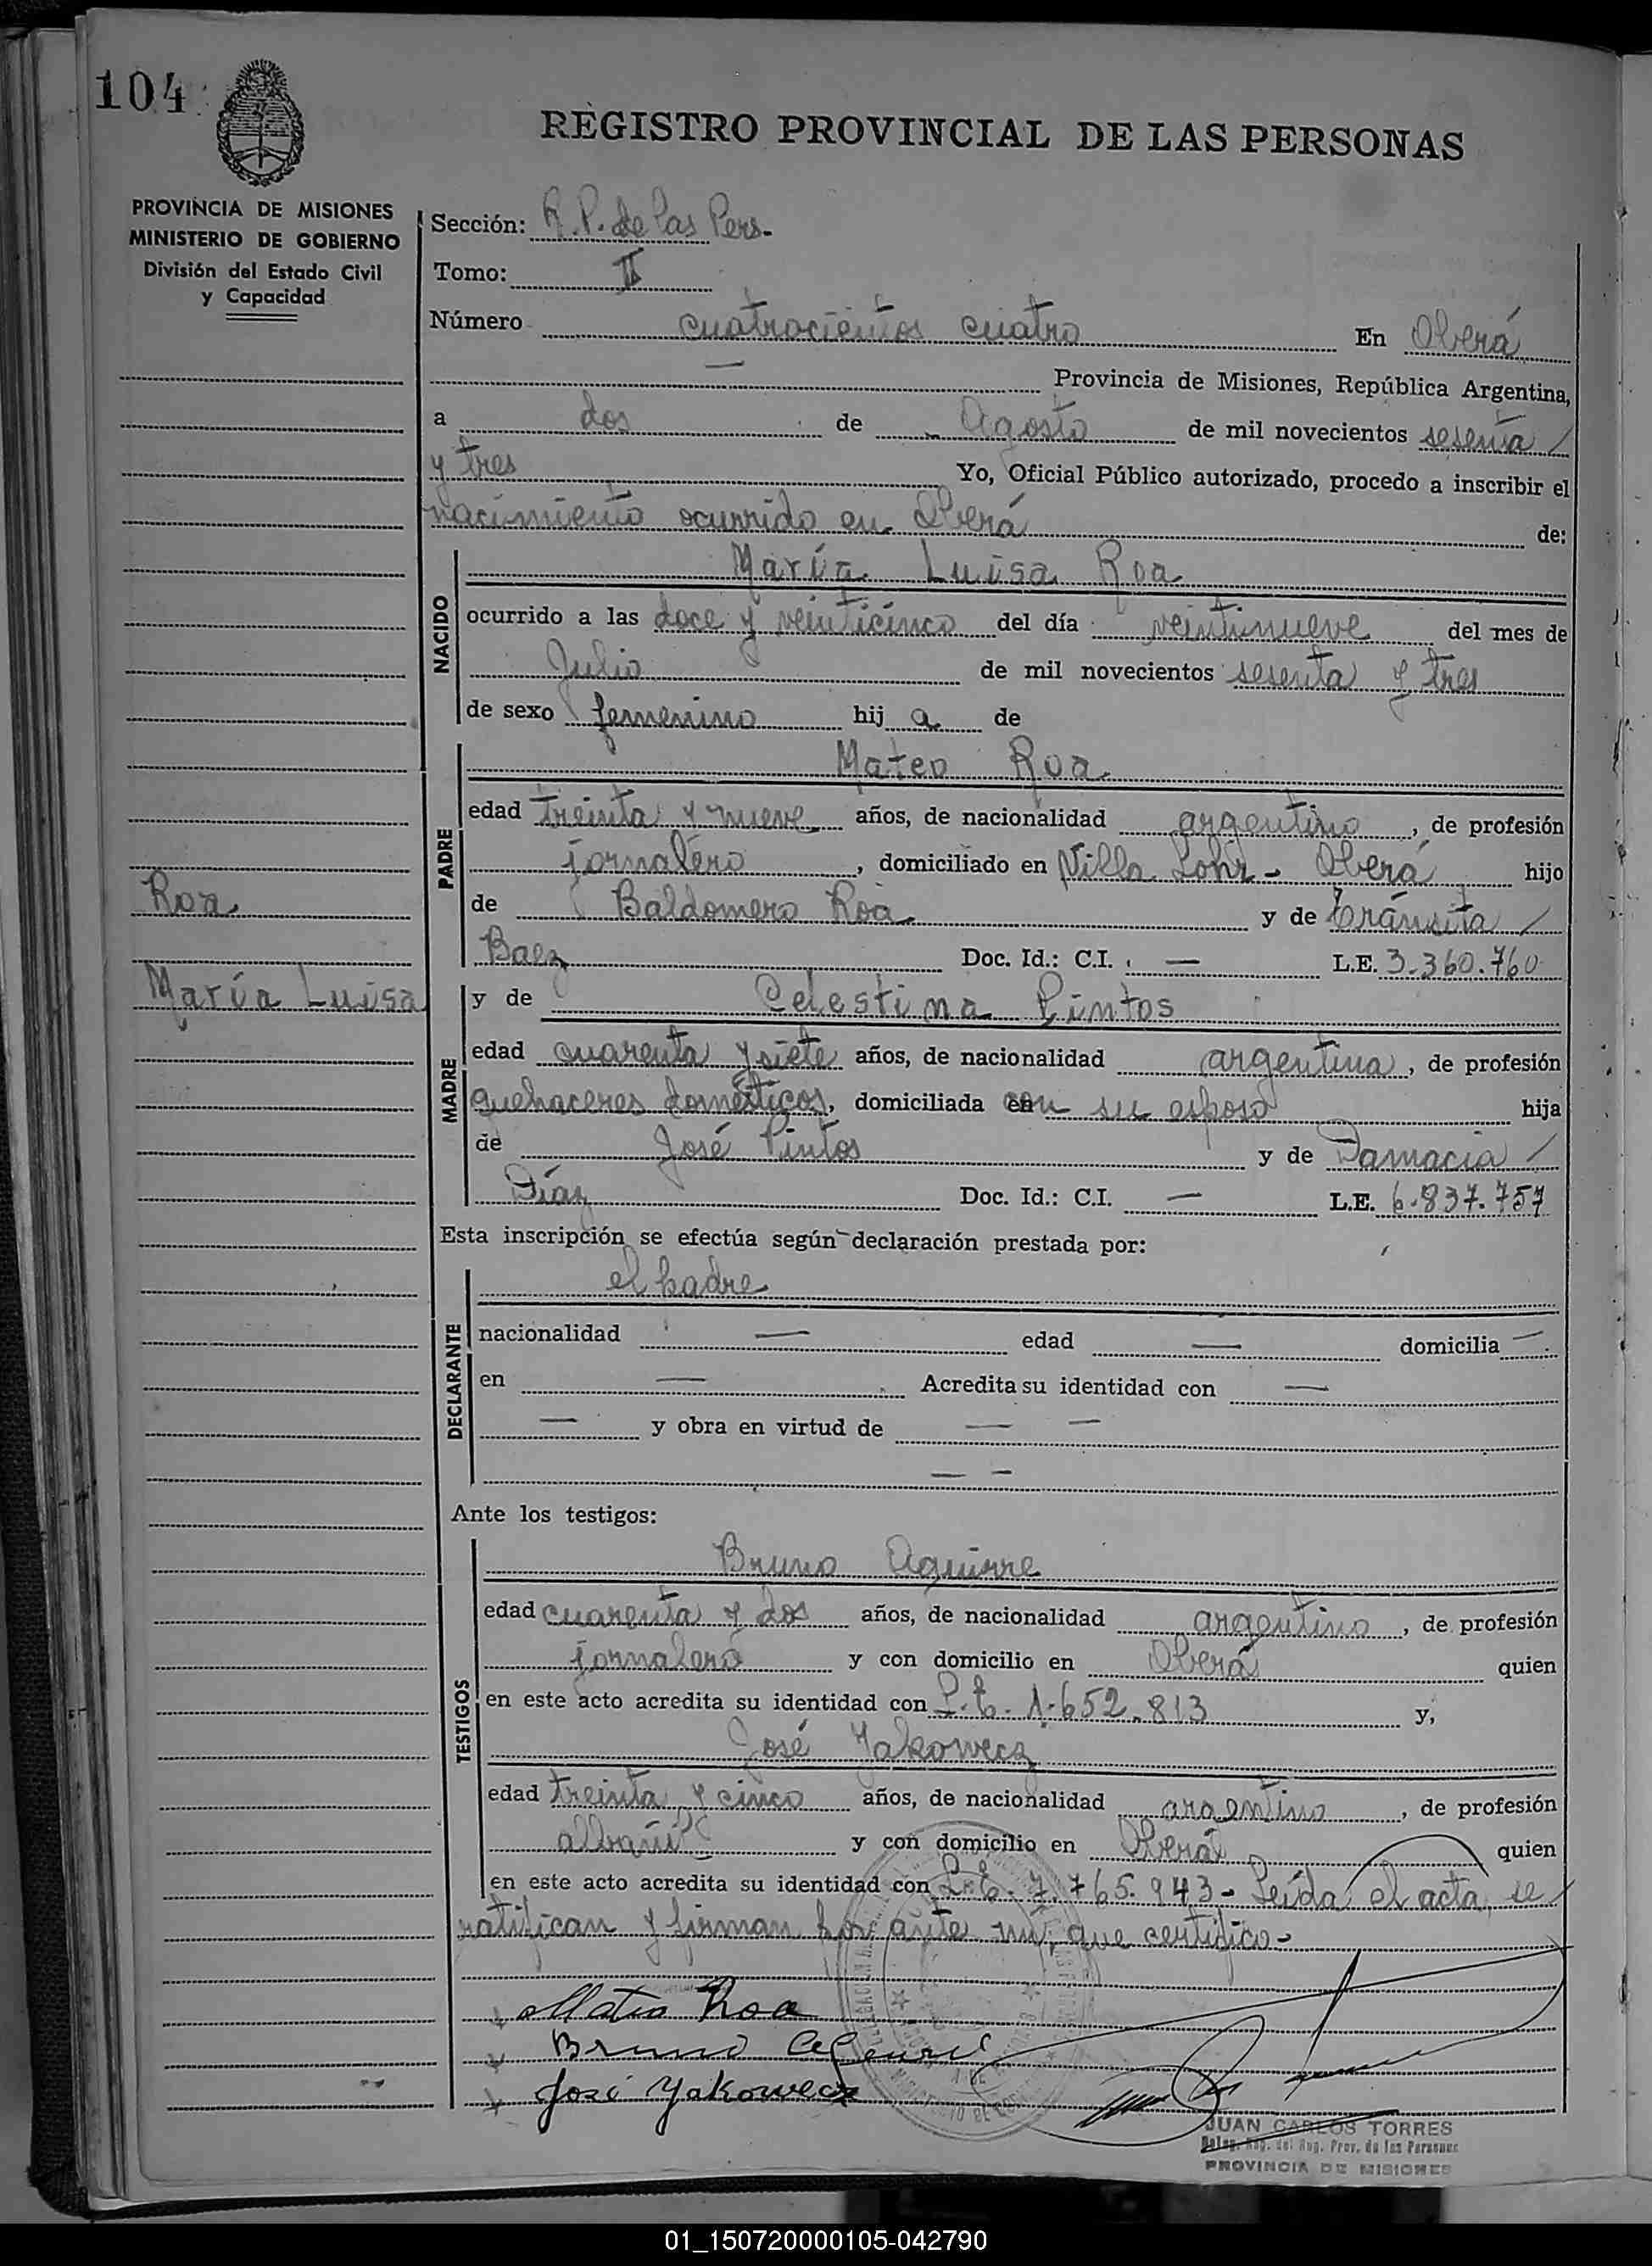 104
REGISTRO PROVINCIAL DE LAS PERSONAS
PROVINCIA DE MISIONES
MINISTERIO DE GOBIERNO
División del Estado Civil
y Capacidad
Sección: R.P. de las Pers.
Tomo: II
Número cuatrocientos cuatro En Oberá
— Provincia de Misiones, República Argentina,
a dos de Agosto de mil novecientos sesenta /
y tres Yo, Oficial Público autorizado, procedo a inscribir el
nacimiento ocurrido en Oberá de:
NACIDO
María Luisa Roa
ocurrido a las doce y veinticinco del día veintinueve del mes de
Julio de mil novecientos sesenta y tres
de sexo femenino hij a de
PADRE
Mateo Roa
edad treinta y nueve años, de nacionalidad argentino, de profesión
jornalero, domiciliado en Villa Lohr - Oberá hijo
de Baldomero Roa y de Tránsita /
Baez Doc. Id.: C.I. — L.E. 3.360.760
Roa
María Luisa
MADRE
y de Celestina Pintos
edad cuarenta y siete años, de nacionalidad argentina, de profesión
quehaceres domésticos, domiciliada con su esposo hija
de José Pintos y de Damacia /
Díaz Doc. Id.: C.I. — L.E. 6.837.757
Esta inscripción se efectúa según declaración prestada por:
DECLARANTE
el padre
nacionalidad — edad — domicilia —
en — Acredita su identidad con —
— y obra en virtud de — —
— —
Ante los testigos:
TESTIGOS
Bruno Aguirre
edad cuarenta y dos años, de nacionalidad argentino, de profesión
jornalero y con domicilio en Oberá quien
en este acto acredita su identidad con L.E. 1.652.813 y,
José Yakowecz
edad treinta y cinco años, de nacionalidad argentino, de profesión
albañil y con domicilio en Oberá quien
en este acto acredita su identidad con L.E. 7.765.943 - Leída el acta, se
ratifican y firman por ante mí, que certifico -
Mateo Roa
Bruno
José Yakowecz
JUAN CARLOS TORRES
Deleg. Reg. del Reg. Prov. de las Personas
PROVINCIA DE MISIONES
01_150720000105-042790